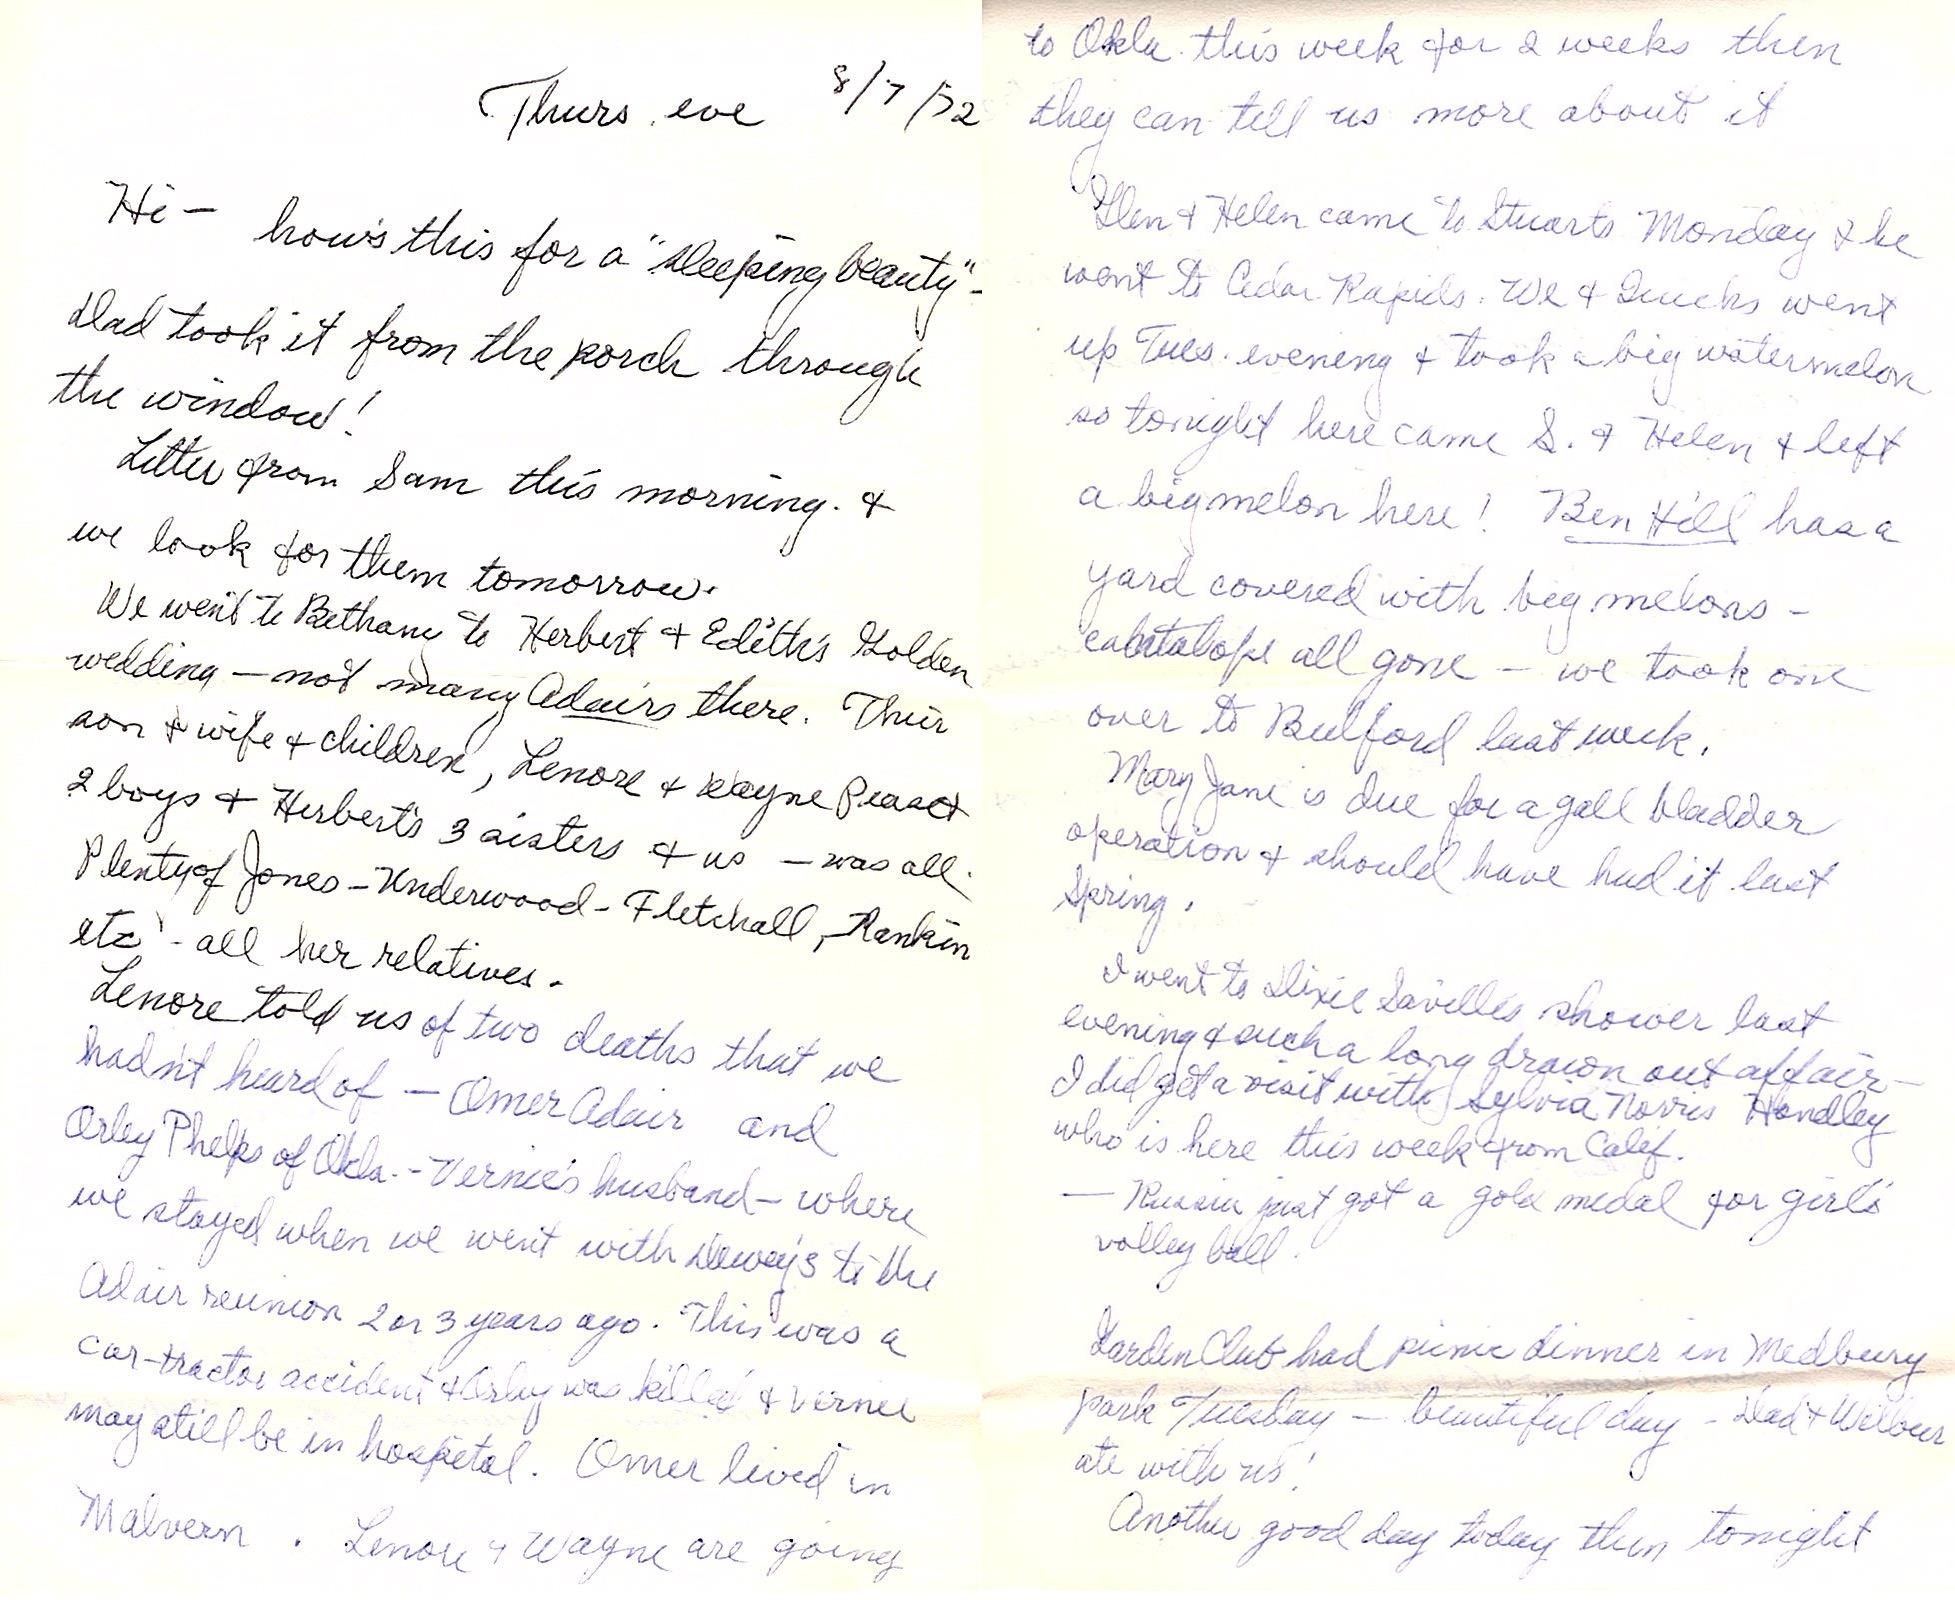 Thurs. eve 8/7/72
Hi — how's this for a "sleeping beauty" -
Dad took it from the porch through
the window!
Letter from Sam this morning. &
we look for them tomorrow.
We went to Bethany to Herbert & Edith's Golden
wedding — not many Adairs there. Their
son & wife & children, Lenore & Wayne
2 boys & Herbert's 3 sisters & us — was all.
Plenty of Jones - Underwood - Fletchall, Rankin
etc - all her relatives.
Lenore told us of two deaths that we
hadn't heard of — Omer Adair and
Orley Phelps of Okla. - Vernie's husband - where
we stayed when we went with Dewey's to the
Adair reunion 2 or 3 years ago. This was a
car-tractor accident & Orley was killed & Vernie
may still be in hospital. Omer lived in
Malvern. Lenore & Wayne are going
to Okla. this week for 2 weeks then
they can tell us more about it
Glen & Helen came to Stuarts Monday & he
went to Cedar Rapids. We & went
up Tues. evening & took a big watermelon
so tonight here came S. & Helen & left
a big melon here! Ben Hill has a
yard covered with big melons -
cantalope all gone — we took one
over to Bulford last week.
Mary Jane is due for a gall bladder
operation & should have had it last
spring.
I went to Dixie Saville's shower last
evening & such a long drawn out affair —
I did get a visit with Sylvia Norris Handley
who is here this week from Calif.
— Russia just got a gold medal for girl's
volley ball.
Garden Club had picnic dinner in Medbury
park Tuesday — beautiful day - Dad & Wilbur
ate with us!
Another good day today then tonight